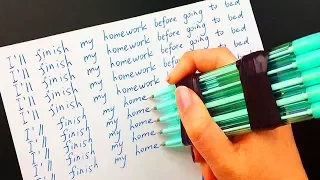 I'll finish my homework before going to bed
I'll finish my homework before going to bed
I'll finish my homework before going to bed
I'll finish my homework before going to bed
I'll finish my homework before going to bed
I'll finish my home
I'll finish my home
I'll finish my home
I'll finish my home
I'll finish my home